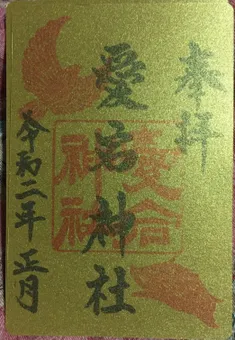 奉拝
愛宕神社
令和二年 正月
愛宕
神社